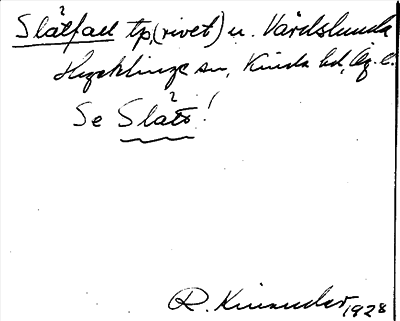 Slåtfall tp, (rivet) u. Värdslunda
Hycklinge sn, Kinda hd, Ög. l.
Se Slått!
R. Kinander 1928